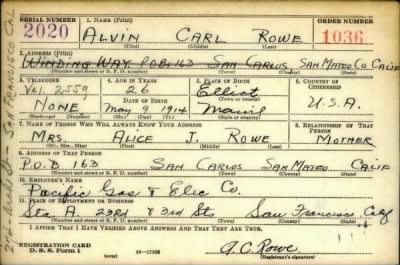 SERIAL NUMBER 1. NAME (Print) ORDER NUMBER
2020 ALVIN CARL ROWE 1036
(First) (Middle) (Last)
2. ADDRESS (Print)
WINDING WAY, P.O.B. 163 SAN CARLOS, SAN MATEO CO. CALIF
(Number and street or R. F. D. number) (Town) (County) (State)
3. TELEPHONE 4. AGE IN YEARS 5. PLACE OF BIRTH 6. COUNTRY OF CITIZENSHIP
Val. 2559 26 Elliot
DATE OF BIRTH (Town or county) U.S.A.
NONE May 9 1914
(Exchange) (Number) (Mo.) (Day) (Yr.) (State or country)
7. NAME OF PERSON WHO WILL ALWAYS KNOW YOUR ADDRESS 8. RELATIONSHIP OF THAT PERSON
MRS. ALICE J. ROWE MOTHER
(Mr., Mrs., Miss) (First) (Middle) (Last)
9. ADDRESS OF THAT PERSON
P.O.B 163 SAN CARLOS SAN MATEO CALIF
(Number and street or R. F. D. number) (Town) (County) (State)
10. EMPLOYER'S NAME
Pacific Gas & Elec Co.
11. PLACE OF EMPLOYMENT OR BUSINESS
Sta. A 23rd & 3rd St. San Francisco, Calif
(Number and street or R. F. D. number) (Town) (County) (State)
I AFFIRM THAT I HAVE VERIFIED ABOVE ANSWERS AND THAT THEY ARE TRUE.
REGISTRATION CARD
D. S. S. Form 1 (over) 16-17105 A.C. Rowe
(Registrant's signature)
SAN FRANCISCO, CA.